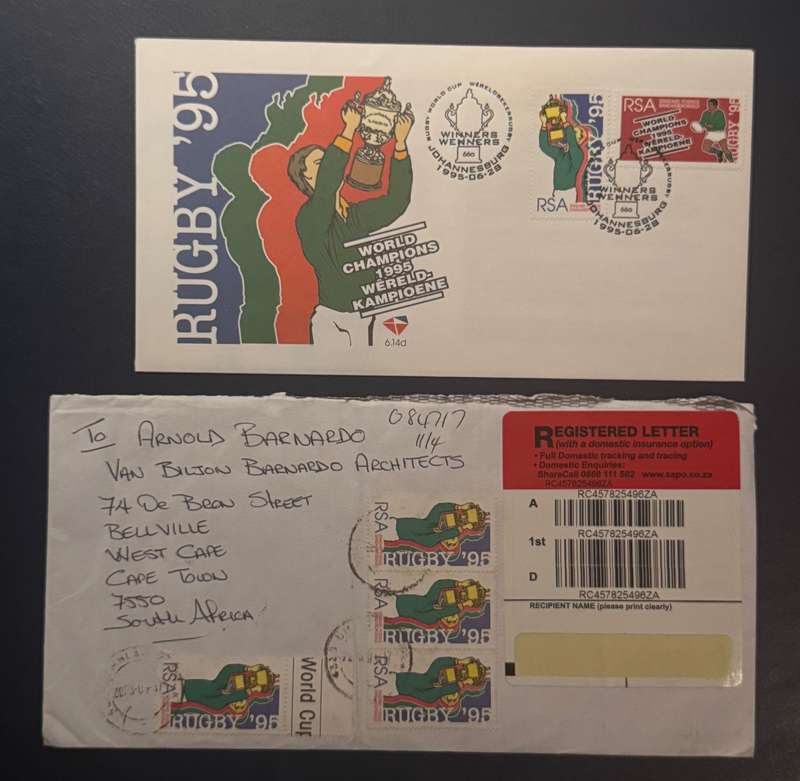 RUGBY '95
WORLD
CHAMPIONS
1995
WÊRELD-
KAMPIOENE
6.14d
RUGBY WORLD CUP WÊRELDBEKERRUGBY
WINNERS
WENNERS
660
JOHANNESBURG
1995-06-28
RUGBY '95
RSA
RSA
WORLD
CHAMPIONS
1995
WÊRELD-
KAMPIOENE
RUGBY '95
WINNERS
WENNERS
660
JOHANNESBURG
1995-06-28
To ARNOLD BARNARDO
VAN BILJON BARNARDO ARCHITECTS
74 DE BRON STREET
BELLVILLE
WEST CAPE
CAPE TOWN
7550
SOUTH AFRICA
084717
11/4
REGISTERED LETTER
(with a domestic insurance option)
• Full Domestic tracking and tracing
• Domestic Enquiries:
ShareCall 0860 111 502 www.sapo.co.za
RC457825496ZA
A
RC457825496ZA
1st
D
RC457825496ZA
RECIPIENT NAME (please print clearly)
RSA
RUGBY '95
RSA
RUGBY '95
RSA
RUGBY '95
RSA
RUGBY '95
World Cup